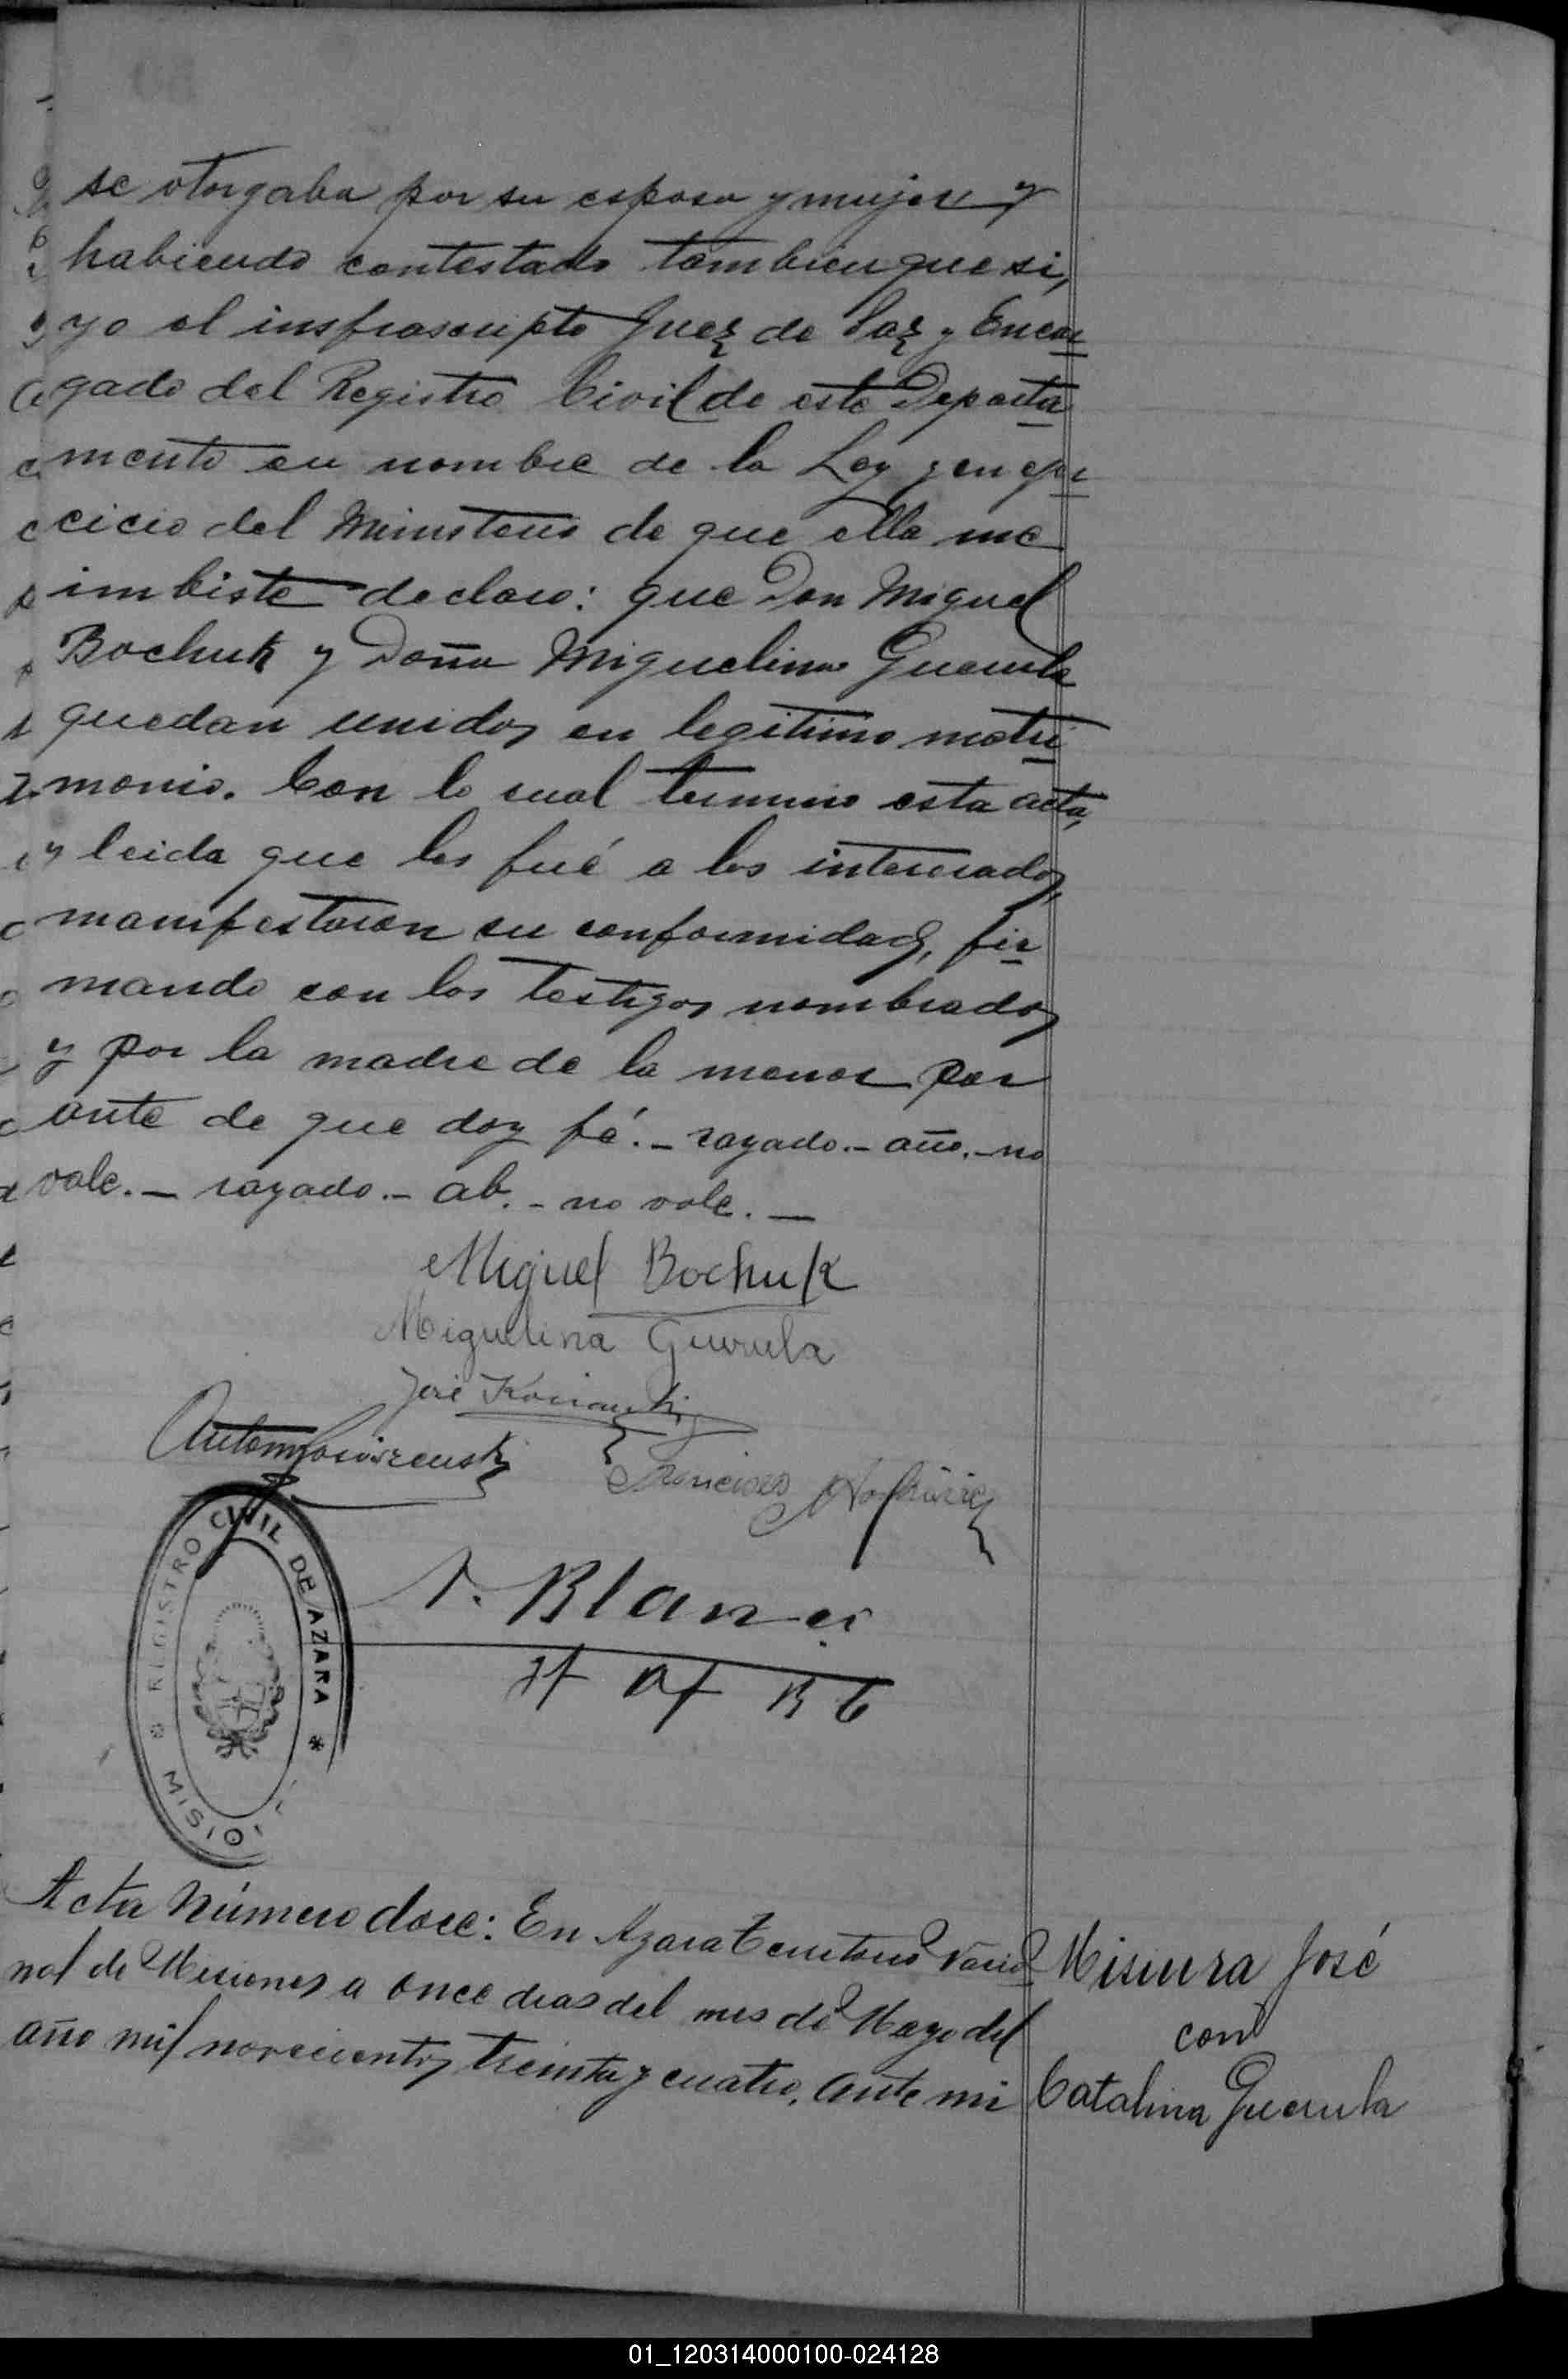 se otorgaba por su esposo y mujer y
habiendo contestado tambien que si,
yo el insfrascripto Juez de Paz y Encar
gado del Registro Civil de este Departa
mento en nombre de la Ley y en ejer
cicio del Ministerio de que ella me
imbiste declaro: que Don Miguel
Bochuk y Doña Miguelina Guerula
quedan unidos en legitimo matri
monio. Con lo cual termino esta acta,
y leida que les fué a los interesados,
manifestaron su conformidad, fir
mando con los testigos nombrados
y por la madre de la menor por
ante de que doy fé. - rayado. - año. - no
vale. - rayado. - ab. - no vale. -
Miguel Bochuk
Miguelina Gurula
José
Francisco
REGISTRO CIVIL DE AZARA * MISIO
Acta Número doce: En Azara Territorio Nacio
nal de Misiones a once dias del mes de Mayo del
año mil novecientos treinta y cuatro. Ante mi
Misiura José
con
Catalina Guerula
01_120314000100-024128